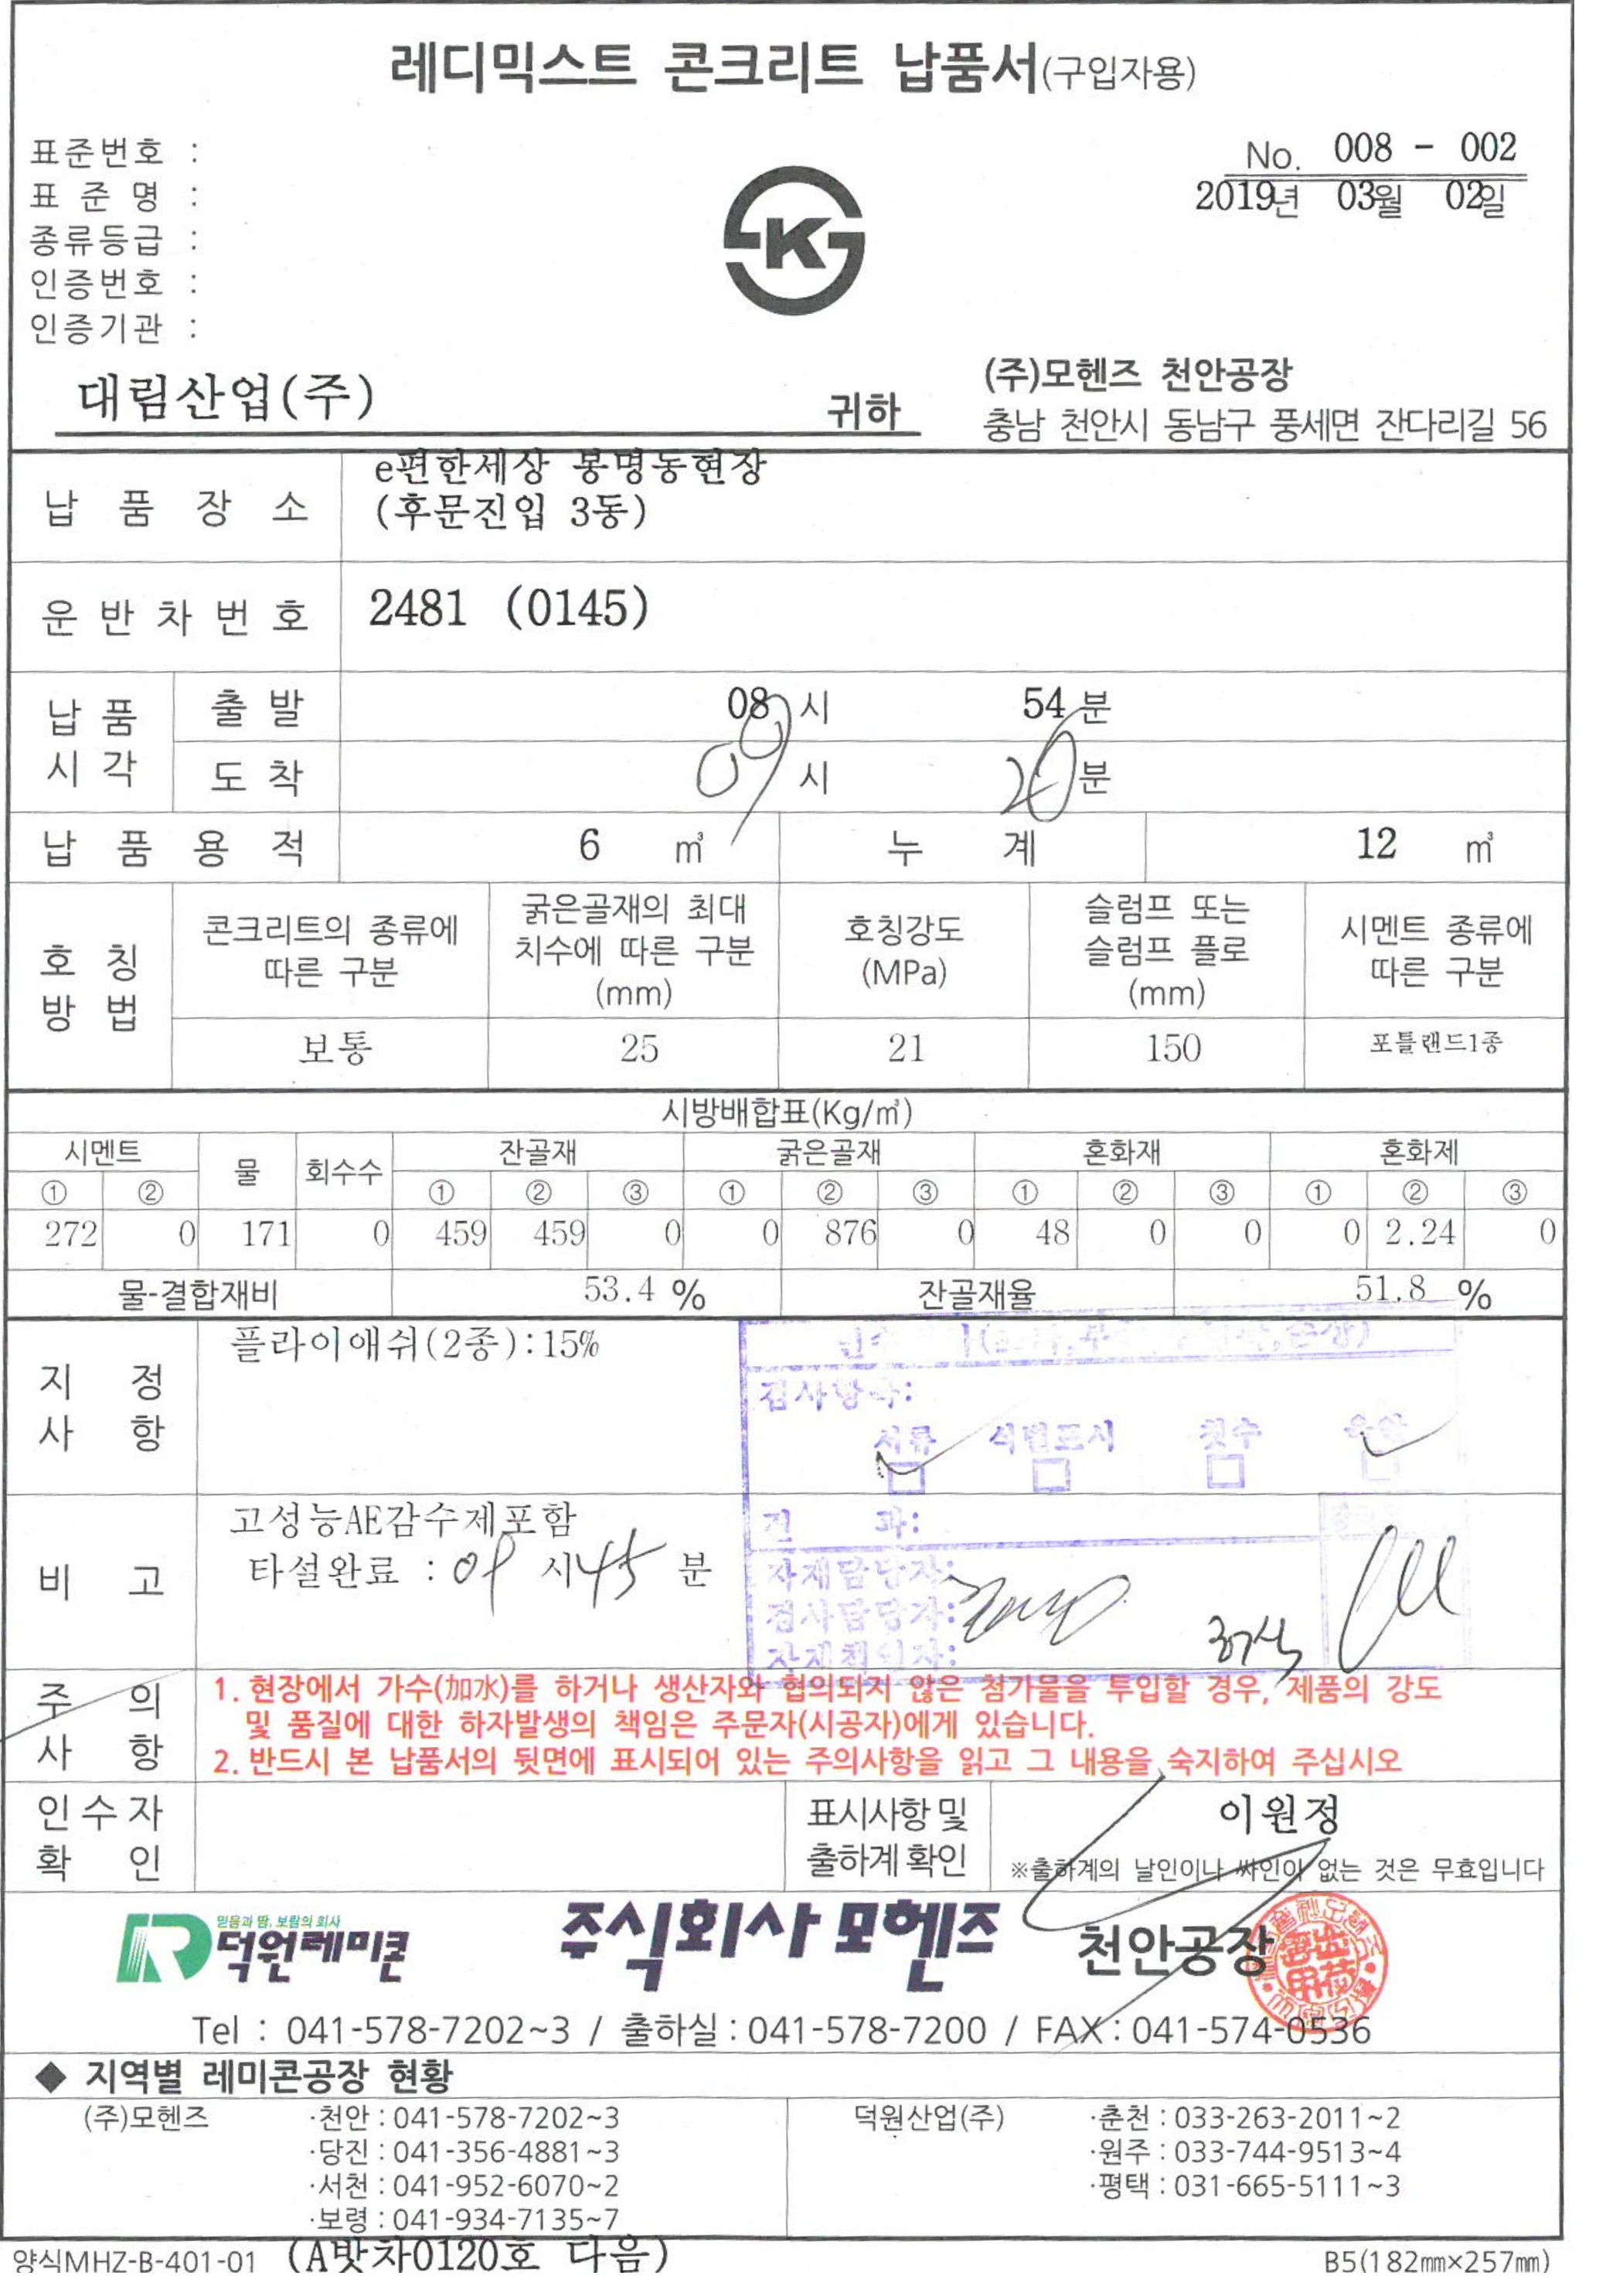 레디믹스트 콘크리트 납품서(구입자용)
표준번호 :
표 준 명 :
종류등급 :
인증번호 :
인증기관 :
No. 008 - 002
2019년 03월 02일
K
대림산업(주) 귀하
(주)모헨즈 천안공장
충남 천안시 동남구 풍세면 잔다리길 56
납 품 장 소
e편한세상 봉명동현장
(후문진입 3동)
운 반 차 번 호 2481 (0145)
납 품 시 각
출 발 08 시 54 분
도 착 09 시 20 분
납 품 용 적 6 ㎥ 누 계 12 ㎥
호 칭 방 법
콘크리트의 종류에 따른 구분
굵은골재의 최대 치수에 따른 구분 (mm)
호칭강도 (MPa)
슬럼프 또는 슬럼프 플로 (mm)
시멘트 종류에 따른 구분
보통 25 21 150 포틀랜드1종
시방배합표(Kg/㎥)
시멘트 물 회수수 잔골재 굵은골재 혼화재 혼화제
① ② ① ② ③ ① ② ③ ① ② ③ ① ② ③
272 0 171 0 459 459 0 0 876 0 48 0 0 0 2.24 0
물-결합재비 53.4 % 잔골재율 51.8 %
지 정 사 항
플라이애쉬(2종):15%
검사항목:
서류 식별표시 칫수
결 과:
자재담당자:
검사담당자:
자재책임자:
비 고
고성능AE감수제포함
타설완료 : 09 시 45 분
주 의 사 항
1. 현장에서 가수(加水)를 하거나 생산자와 협의되지 않은 첨가물을 투입할 경우, 제품의 강도
및 품질에 대한 하자발생의 책임은 주문자(시공자)에게 있습니다.
2. 반드시 본 납품서의 뒷면에 표시되어 있는 주의사항을 읽고 그 내용을 숙지하여 주십시오
인 수 자 확 인
표시사항 및 출하계 확인
이원정
※출하계의 날인이나 싸인이 없는 것은 무효입니다
믿음과 땀, 보람의 회사
덕원레미콘
주식회사 모헨즈 천안공장
Tel : 041-578-7202~3 / 출하실 : 041-578-7200 / FAX : 041-574-0536
◆ 지역별 레미콘공장 현황
(주)모헨즈
·천안 : 041-578-7202~3
·당진 : 041-356-4881~3
·서천 : 041-952-6070~2
·보령 : 041-934-7135~7
덕원산업(주)
·춘천 : 033-263-2011~2
·원주 : 033-744-9513~4
·평택 : 031-665-5111~3
양식MHZ-B-401-01 (A밧차0120호 다음) B5(182㎜×257㎜)